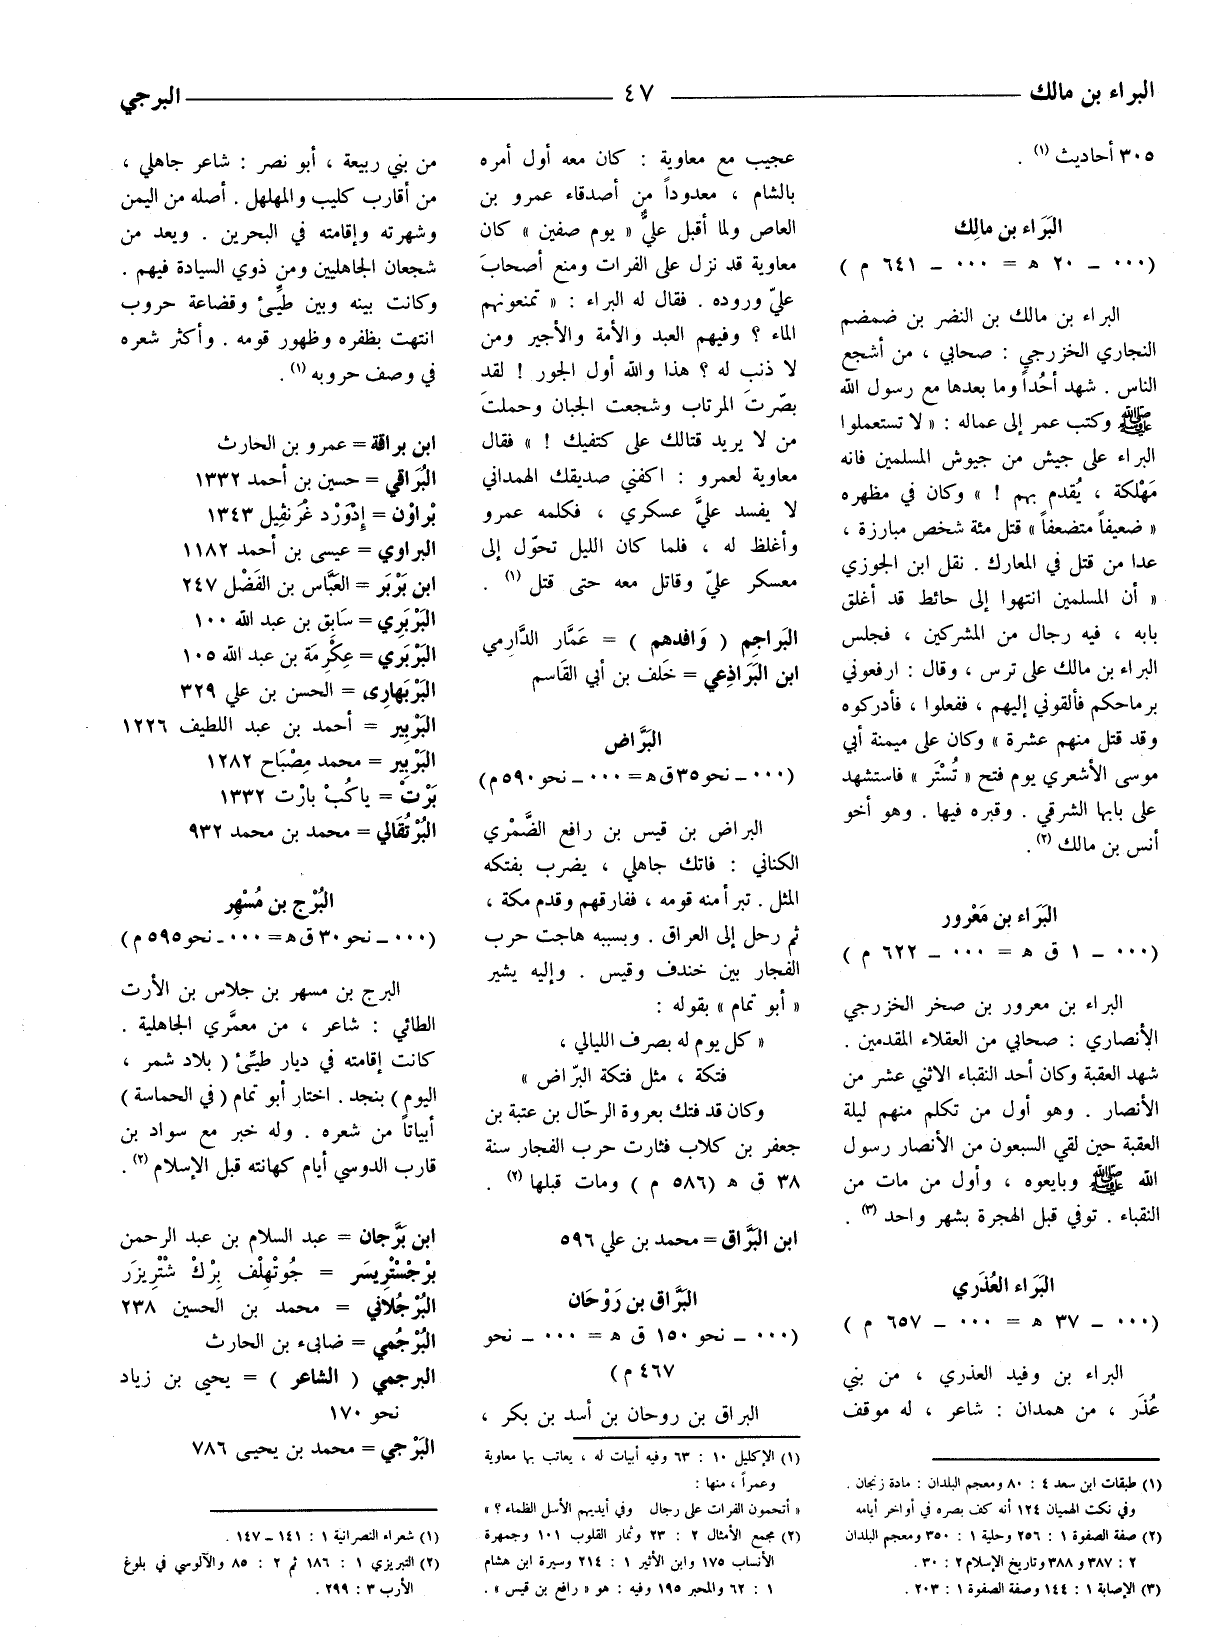 البراء بن مالك
٤٧
البرجي
٣٠٥ أحاديث (١) .
البَرَاء بن مالِك
(٠٠٠ - ٢٠ ه = ٠٠٠ - ٦٤١ م )
البراء بن مالك بن النضر بن ضمضم
النجاري الخزرجي : صحابي ، من أشجع
الناس . شهد أحُداً وما بعدها مع رسول الله
ﷺ وكتب عمر إلى عماله : « لا تستعملوا
البراء على جيش من جيوش المسلمين فانه
مَهْلكة ، يُقدم بهم ! » وكان في مظهره
« ضعيفاً متضعفاً » قتل مئة شخص مبارزة ،
عدا من قتل في المعارك . نقل ابن الجوزي
« أن المسلمين انتهوا إلى حائط قد أغلق
بابه ، فيه رجال من المشركين ، فجلس
البراء بن مالك على ترس ، وقال : ارفعوني
برماحكم فألقوني إليهم ، ففعلوا ، فأدركوه
وقد قتل منهم عشرة » وكان على ميمنة أبي
موسى الأشعري يوم فتح « تُسْتَر » فاستشهد
على بابها الشرقي . وقبره فيها . وهو أخو
أنس بن مالك (٢) .
البَرَاء بن مَعْرور
(٠٠٠ - ١ ق ه = ٠٠٠ - ٦٢٢ م )
البراء بن معرور بن صخر الخزرجي
الأنصاري : صحابي من العقلاء المقدمين .
شهد العقبة وكان أحد النقباء الاثني عشر من
الأنصار . وهو أول من تكلم منهم ليلة
العقبة حين لقي السبعون من الأنصار رسول
الله ﷺ وبايعوه ، وأول من مات من
النقباء . توفي قبل الهجرة بشهر واحد (٣) .
البَرَاء العُذَري
(٠٠٠ - ٣٧ ه = ٠٠٠ - ٦٥٧ م )
البراء بن وفيد العذري ، من بني
عُذَر ، من همدان : شاعر ، له موقف
(١) طبقات ابن سعد ٤ : ٨٠ ومعجم البلدان : مادة زنجان .
وفي نكت الهميان ١٢٤ أنه كف بصره في أواخر أيامه
(٢) صفة الصفوة ١ : ٢٥٦ وحلية ١ : ٣٥٠ ومعجم البلدان
٢ : ٣٨٧ و ٣٨٨ وتاريخ الإسلام ٢ : ٣٠ .
(٣) الإصابة ١ : ١٤٤ وصفة الصفوة ١ : ٢٠٣ .
عجيب مع معاوية : كان معه أول أمره
بالشام ، معدوداً من أصدقاء عمرو بن
العاص ولما أقبل عليٌّ « يوم صفين » كان
معاوية قد نزل على الفرات ومنع أصحابَ
عليّ وروده . فقال له البراء : « تمنعونهم
الماء ؟ وفيهم العبد والأمة والأجير ومن
لا ذنب له ؟ هذا والله أول الجور ! لقد
بصّرتَ المرتاب وشجعت الجبان وحملتَ
من لا يريد قتالك على كتفيك ! » فقال
معاوية لعمرو : اكفني صديقك الهمداني
لا يفسد عليَّ عسكري ، فكلمه عمرو
وأغلظ له ، فلما كان الليل تحوّل إلى
معسكر عليّ وقاتل معه حتى قتل (١) .
البَراجِم ( وَافدهم ) = عَمَّار الدَّارِمي
ابن البَرَاذِعي = خَلَف بن أبي القَاسم
البَرَّاض
(٠٠٠ - نحو ٣٥ ق ه = ٠٠٠ - نحو ٥٩٠ م)
البراض بن قيس بن رافع الضَّمْري
الكناني : فاتك جاهلي ، يضرب بفتكه
المثل . تبرأ منه قومه ، ففارقهم وقدم مكة ،
ثم رحل إلى العراق . وبسببه هاجت حرب
الفجار بين خندف وقيس . وإليه يشير
« أبو تمام » بقوله :
« كل يوم له بصرف الليالي ،
فتكة ، مثل فتكة البرّاض »
وكان قد فتك بعروة الرحّال بن عتبة بن
جعفر بن كلاب فثارت حرب الفجار سنة
٣٨ ق ه (٥٨٦ م ) ومات قبلها (٢) .
ابن البَرَّاق = محمد بن علي ٥٩٦
البَرَّاق بن رَوْحَان
(٠٠٠ - نحو ١٥٠ ق ه = ٠٠٠ - نحو
٤٦٧ م)
البراق بن روحان بن أسد بن بكر ،
(١) الإكليل ١٠ : ٦٣ وفيه أبيات له ، يعاتب بها معاوية
وعمراً ، منها :
« أتحمون الفرات على رجال وفي أيديهم الأسل الظماء ؟ »
(٢) مجمع الأمثال ٢ : ٢٣ وثمار القلوب ١٠١ وجمهرة
الأنساب ١٧٥ وابن الأثير ١ : ٢١٤ وسيرة ابن هشام
١ : ٦٢ والمحبر ١٩٥ وفيه : هو « رافع بن قيس » .
من بني ربيعة ، أبو نصر : شاعر جاهلي ،
من أقارب كليب والمهلهل . أصله من اليمن
وشهرته وإقامته في البحرين . ويعد من
شجعان الجاهليين ومن ذوي السيادة فيهم .
وكانت بينه وبين طيِّئ وقضاعة حروب
انتهت بظفره وظهور قومه . وأكثر شعره
في وصف حروبه (١) .
ابن براقة = عمرو بن الحارث
البُرَاقي = حسين بن أحمد ١٣٣٢
بْراوْن = إدْوَرْد غْرَنْفِيل ١٣٤٣
البراوي = عيسى بن أحمد ١١٨٢
ابن بَرْبَر = العَبَّاس بن الفَضْل ٢٤٧
البَرْبَرِي = سَابِق بن عبد الله ١٠٠
البَرْبَري = عِكْرِمَة بن عبد الله ١٠٥
البَرْبَهارِى = الحسن بن علي ٣٢٩
البَرْبِير = أحمد بن عبد اللطيف ١٢٢٦
البَرْبِير = محمد مِصْبَاح ١٢٨٢
بَرْتْ = ياكُبْ بارْت ١٣٣٢
البُرْتُقَالي = محمد بن محمد ٩٣٢
البُرْج بن مُسْهِر
(٠٠٠ - نحو ٣٠ ق ه = ٠٠٠ - نحو ٥٩٥ م )
البرج بن مسهر بن جلاس بن الأرت
الطائي : شاعر ، من معمَّري الجاهلية .
كانت إقامته في ديار طيِّئ ( بلاد شمر ،
اليوم ) بنجد . اختار أبو تمام ( في الحماسة )
أبياتاً من شعره . وله خبر مع سواد بن
قارب الدوسي أيام كهانته قبل الإسلام (٢) .
ابن بَرَّجان = عبد السلام بن عبد الرحمن
برْجْسْتْرِيسَر = جُوتْهِلْف بِرْكْ شْتْرِيزَر
البُرْجُلاني = محمد بن الحسين ٢٣٨
البُرْجُمي = ضابىء بن الحارث
البرجمي ( الشاعر ) = يحيى بن زياد
نحو ١٧٠
البَرْجي = محمد بن يحيى ٧٨٦
(١) شعراء النصرانية ١ : ١٤١ - ١٤٧ .
(٢) التبريزي ١ : ١٨٦ ثم ٢ : ٨٥ والآلوسي في بلوغ
الأرب ٣ : ٢٩٩ .